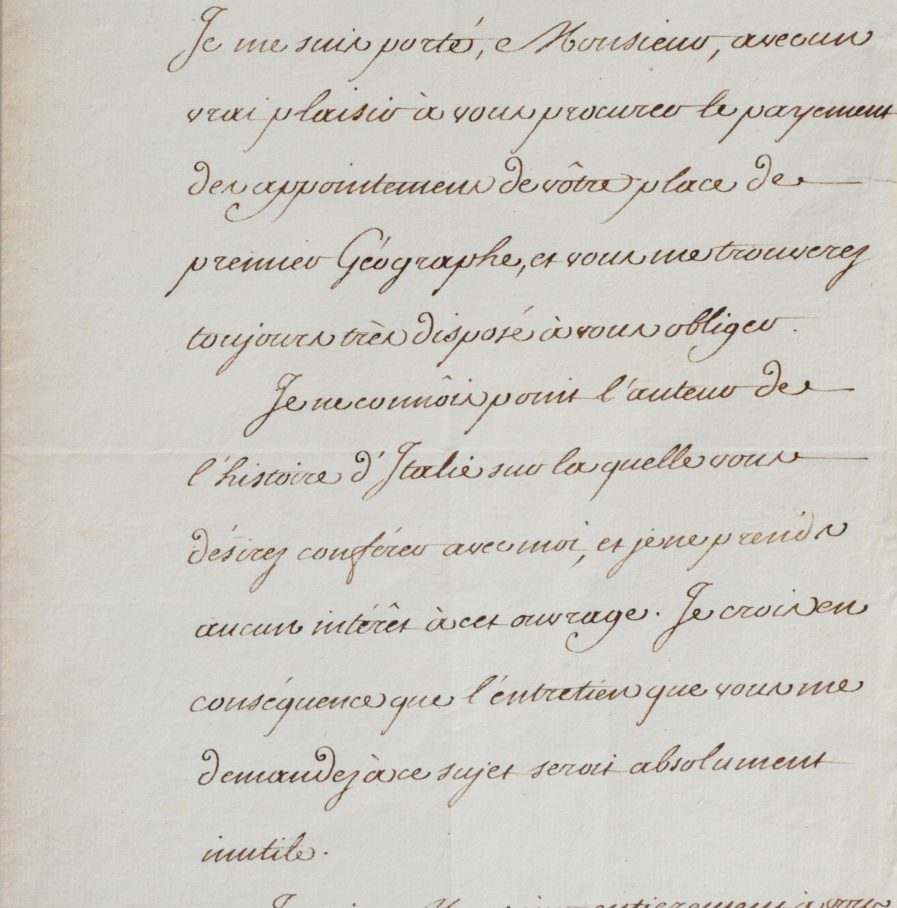 Je me suis porté, Monsieur, avec un
vrai plaisir à vous procurer le payement
des appointemens de vôtre place de
premier Géographe, et vous me trouverez
toujours très disposé à vous obliger.
Je ne connôis point l'auteur de
l'histoire d'Italie sur la quelle vous
désirez conférer avec moi, et je ne prends
aucun intérêt à cet ouvrage. Je crois en
conséquence que l'entretien que vous me
demandez à ce sujet seroit absolument
inutile.
Je entierement à vous